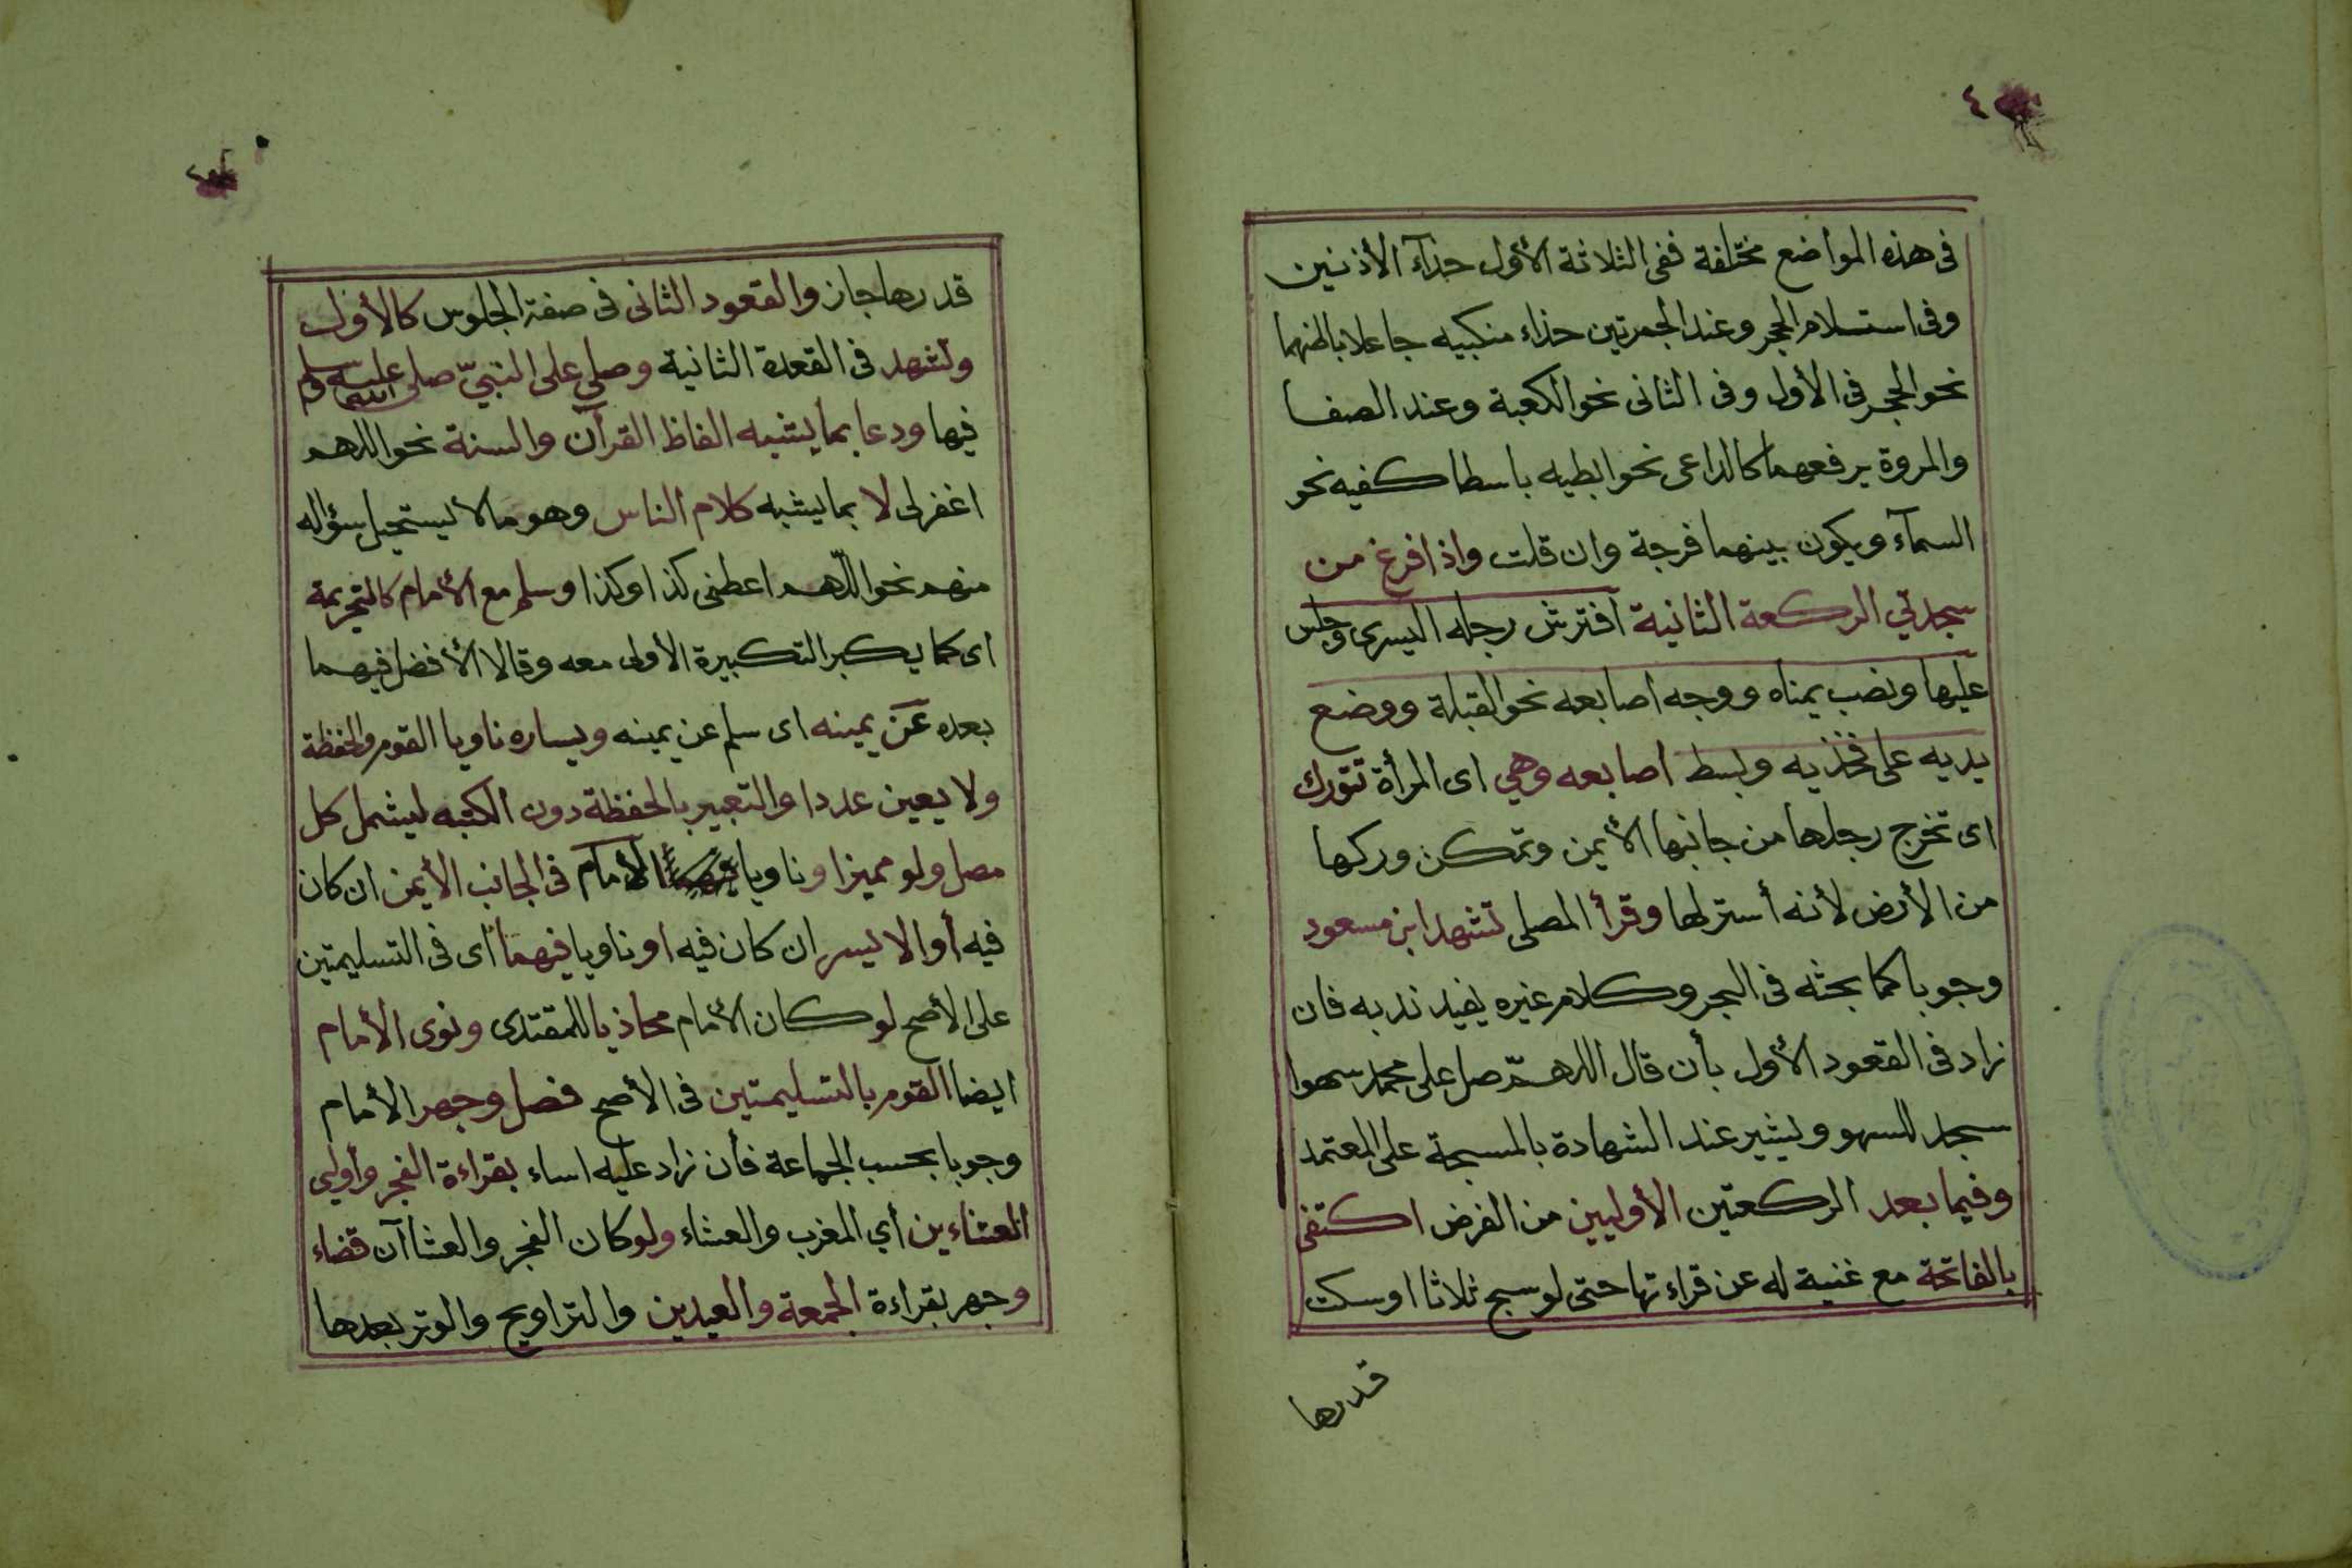 ٤
فى هذه المواضع مختلفة ففى الثلاثة الأول حذآء الأذنين
وفى استلام الحجر وعند الجمرتين حذاء منكبيه جاعلا باطنهما
نحو الحجر فى الأول وفى الثانى نحو الكعبة وعند الصفا
والمروة يرفعهما كالداعى نحو ابطيه باسطا كفيه نحو
السمآء ويكون بينهما فرجة وان قلت واذا فرغ من
سجدتي الركعة الثانية افترش رجله اليسرى وجلس
عليها ونصب يمناه ووجه اصابعه نحو القبلة ووضع
يديه على فخذيه وبسط اصابعه وهي اى المرأة تتورك
اى تخرج رجلها من جانبها الأيمن وتمكن وركها
من الأرض لأنه أستر لها وقرأ المصلى تشهد ابن مسعود
وجوبا كما بحثه فى البحر وكلام غيره يفيد ندبه فان
زاد فى القعود الأول بأن قال اللهمّ صل على محمد سهوا
سجد للسهو ويشير عند الشهادة بالمسبحة على المعتمد
وفيما بعد الركعتين الأوليين من الفرض اكتفى
بالفاتحة مع غنية له عن قراءتها حتى لو سبح ثلاثا او سكت
قدرها
قدرها جاز والقعود الثانى فى صفة الجلوس كالأول
وتشهد فى القعدة الثانية وصلى على النبيّ صلى الله عليه وسلم
فيها ودعا بما يشبه الفاظ القرآن والسنة نحو اللهم
اغفر لى لا بما يشبه كلام الناس وهو مالا يستحيل سؤاله
منهم نحو اللّهم اعطنى كذا وكذا وسلم مع الأمام كالتحريمة
اى كما يكبر التكبيرة الأولى معه وقالا الأفضل فيهما
بعده عن يمينه اى سلم عن يمينه ويساره ناويا القوم والحفظة
ولا يعين عددا والتعبير بالحفظة دون الكتبه ليشمل كل
مصل ولو مميزا وناويا الأمام فى الجانب الأيمن ان كان
فيه أو الايسر ان كان فيه او ناويا فيهما اى فى التسليمتين
على الأصح لو كان الأمام محاذيا للمقتدى ونوى الأمام
ايضا القوم بالتسليمتين فى الأصح فصل وجهر الأمام
وجوبا بحسب الجماعة فأن زاد عليه اساء بقراءة الفجر وأولي
العشاءين أي المغرب والعشاء ولو كان الفجر والعشاآن قضاء
وجهر بقراءة الجمعة والعيدين والتراويح والوتر بعدها